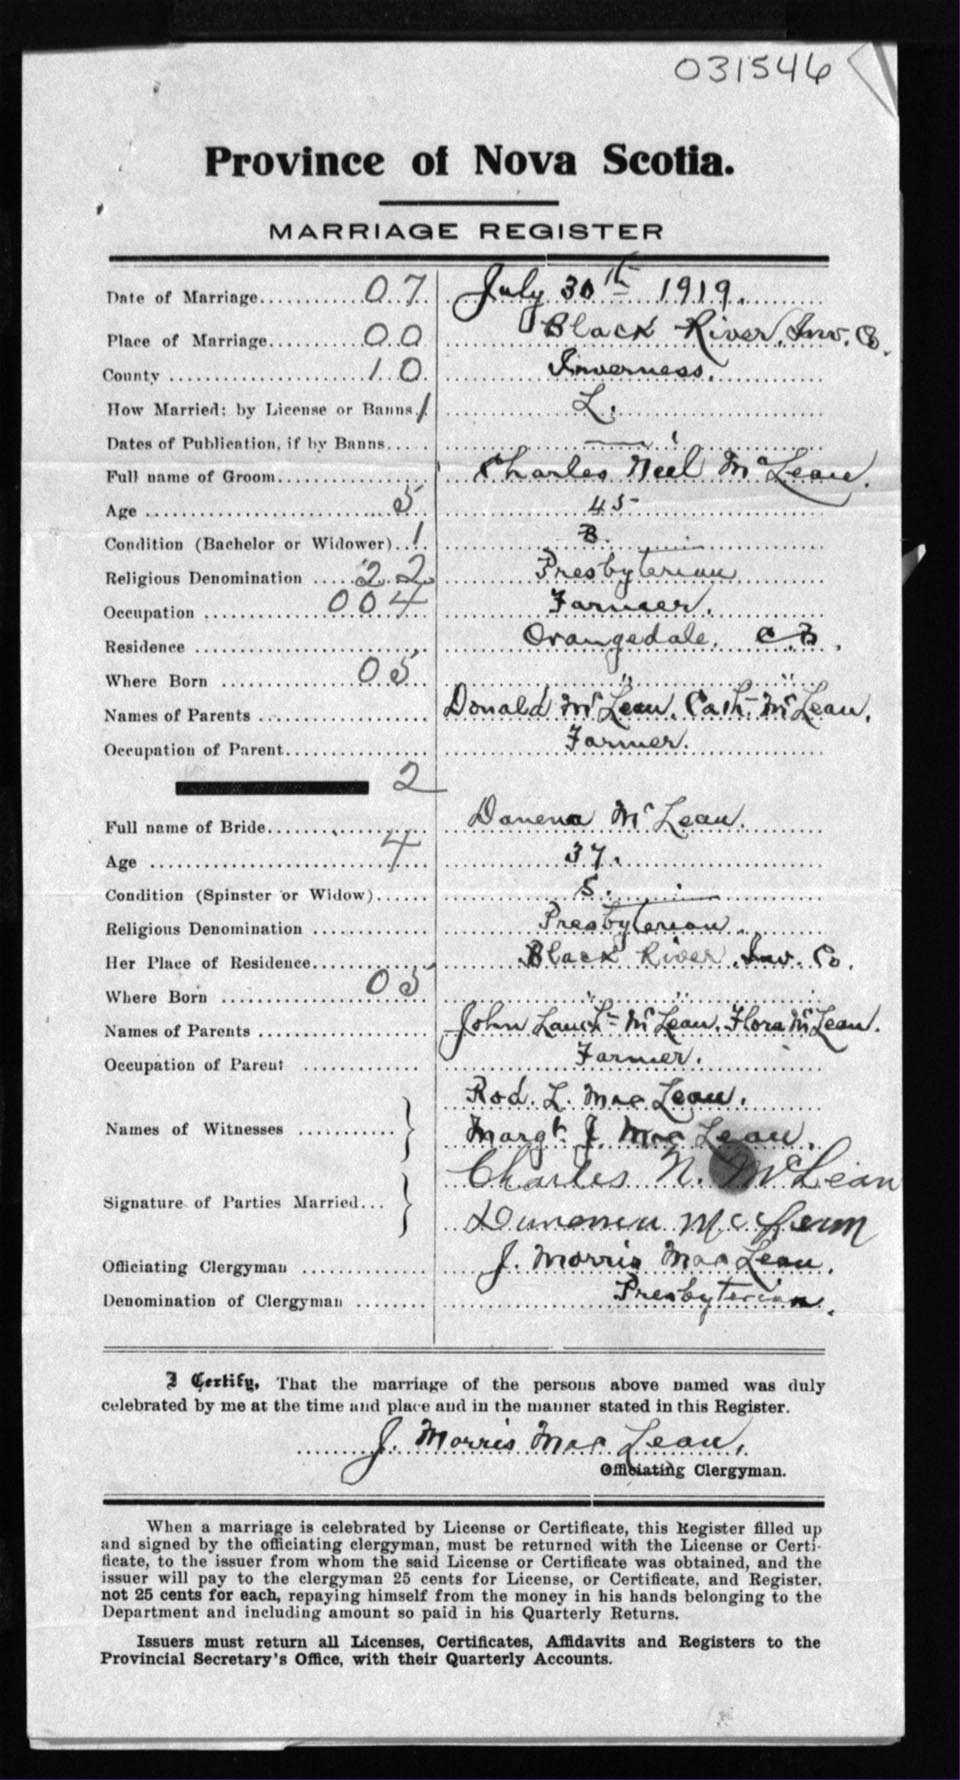 031546
Province of Nova Scotia.
MARRIAGE REGISTER
Date of Marriage 07 July 30th 1919.
Place of Marriage 00 Black River, Inv. Co.
County 10 Inverness.
How Married: by License or Banns 1 L.
Dates of Publication, if by Banns —
Full name of Groom Charles Neil McLean.
Age 5 45
Condition (Bachelor or Widower) 1 B.
Religious Denomination 22 Presbyterian
Occupation 004 Farmer.
Residence Orangedale, C.B.
Where Born 05 " "
Names of Parents Donald McLean, Cath McLean.
Occupation of Parent Farmer.
2
Full name of Bride Danena McLean.
Age 4 37.
Condition (Spinster or Widow) S.
Religious Denomination Presbyterian
Her Place of Residence Black River, Inv. Co.
Where Born 05 " "
Names of Parents John Lauch McLean, Flora McLean.
Occupation of Parent Farmer.
Rod. L. MacLean.
Names of Witnesses
Margt. J. MacLean.
Charles N. McLean
Signature of Parties Married
McLean
Officiating Clergyman J. Morris MacLean.
Denomination of Clergyman Presbyterian.
I Certify, That the marriage of the persons above named was duly
celebrated by me at the time and place and in the manner stated in this Register.
J. Morris MacLean.
Officiating Clergyman.
When a marriage is celebrated by License or Certificate, this Register filled up
and signed by the officiating clergyman, must be returned with the License or Certi-
ficate, to the issuer from whom the said License or Certificate was obtained, and the
issuer will pay to the clergyman 25 cents for License, or Certificate, and Register,
not 25 cents for each, repaying himself from the money in his hands belonging to the
Department and including amount so paid in his Quarterly Returns.
Issuers must return all Licenses, Certificates, Affidavits and Registers to the
Provincial Secretary's Office, with their Quarterly Accounts.